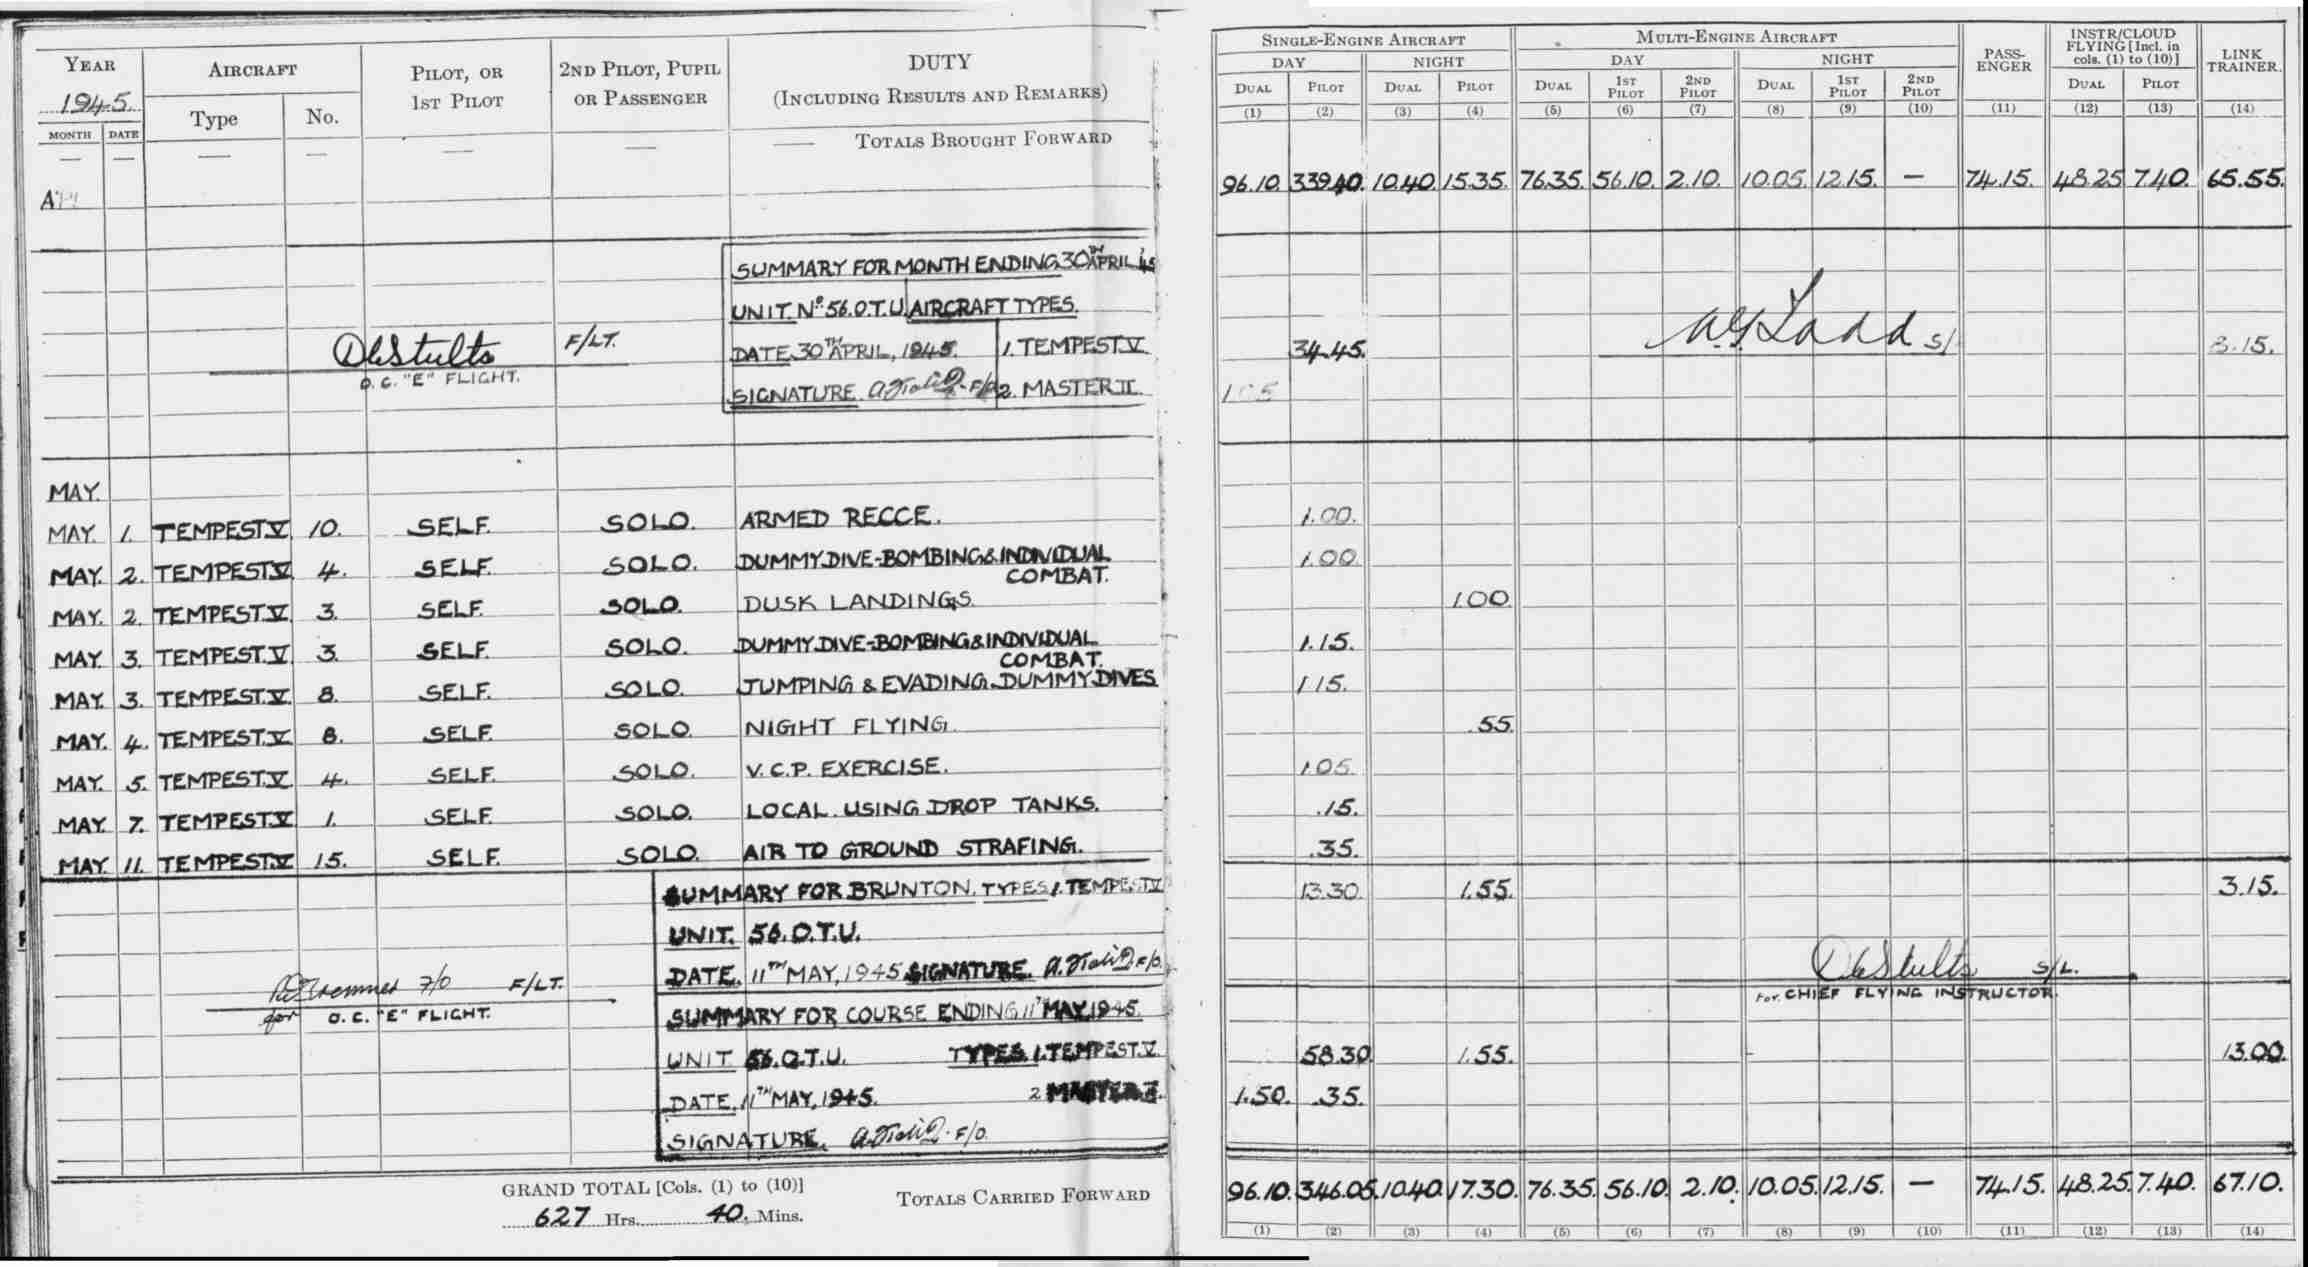 YEAR AIRCRAFT PILOT, OR 1ST PILOT 2ND PILOT, PUPIL OR PASSENGER DUTY (INCLUDING RESULTS AND REMARKS)
1945. Type No.
MONTH DATE
— — — — — — — TOTALS BROUGHT FORWARD
SUMMARY FOR MONTH ENDING 30TH APRIL '45
UNIT. No. 56.O.T.U. AIRCRAFT TYPES.
F/LT. DATE 30TH APRIL, 1945. 1. TEMPEST V
O.C. "E" FLIGHT.
SIGNATURE. F/O 2. MASTER II.
MAY.
MAY. 1. TEMPEST.V. 10. SELF. SOLO. ARMED RECCE.
MAY. 2. TEMPEST.V. 4. SELF. SOLO. DUMMY.DIVE-BOMBING & INDIVIDUAL
COMBAT.
MAY. 2. TEMPEST.V. 3. SELF. SOLO. DUSK LANDINGS.
MAY. 3. TEMPEST.V. 3. SELF. SOLO. DUMMY.DIVE-BOMBING & INDIVIDUAL
COMBAT.
MAY. 3. TEMPEST.V. 8. SELF. SOLO. JUMPING & EVADING. DUMMY.DIVES
MAY. 4. TEMPEST.V. 8. SELF. SOLO. NIGHT FLYING.
MAY. 5. TEMPEST.V. 4. SELF. SOLO. V.C.P. EXERCISE.
MAY. 7. TEMPEST.V. 1. SELF. SOLO. LOCAL. USING DROP TANKS.
MAY. 11. TEMPEST.V. 15. SELF. SOLO. AIR TO GROUND STRAFING.
SUMMARY FOR BRUNTON. TYPES 1. TEMPEST.V
UNIT. 56.O.T.U.
DATE. 11TH MAY, 1945 SIGNATURE. F/O.
F/O F/LT.
for O.C. "E" FLIGHT.
SUMMARY FOR COURSE ENDING 11TH MAY, 1945.
UNIT 56.O.T.U. TYPES. 1. TEMPEST.V.
DATE. 11TH MAY, 1945. 2 MASTER II.
SIGNATURE. F/O.
GRAND TOTAL [Cols. (1) to (10)]
627 Hrs. 40. Mins.
TOTALS CARRIED FORWARD
SINGLE-ENGINE AIRCRAFT MULTI-ENGINE AIRCRAFT PASSENGER INSTR/CLOUD FLYING [Incl. in cols. (1) to (10)] LINK TRAINER.
DAY NIGHT DAY NIGHT
DUAL PILOT DUAL PILOT DUAL 1ST PILOT 2ND PILOT DUAL 1ST PILOT 2ND PILOT DUAL PILOT
(1) (2) (3) (4) (5) (6) (7) (8) (9) (10) (11) (12) (13) (14)
96.10. 339.40. 10.40. 15.35. 76.35. 56.10. 2.10. 10.05. 12.15. — 74.15. 48.25 7.40. 65.55.
34.45. S/ 3.15.
1.00.
1.00
1.00
1.15.
1.15.
.55
1.05.
.15.
.35.
13.30. 1.55. 3.15.
S/L.
For. CHIEF FLYING INSTRUCTOR.
58.30 1.55. 13.00.
1.50. .35.
96.10. 346.05. 10.40. 17.30. 76.35. 56.10. 2.10. 10.05. 12.15. — 74.15. 48.25. 7.40. 67.10.
(1) (2) (3) (4) (5) (6) (7) (8) (9) (10) (11) (12) (13) (14)